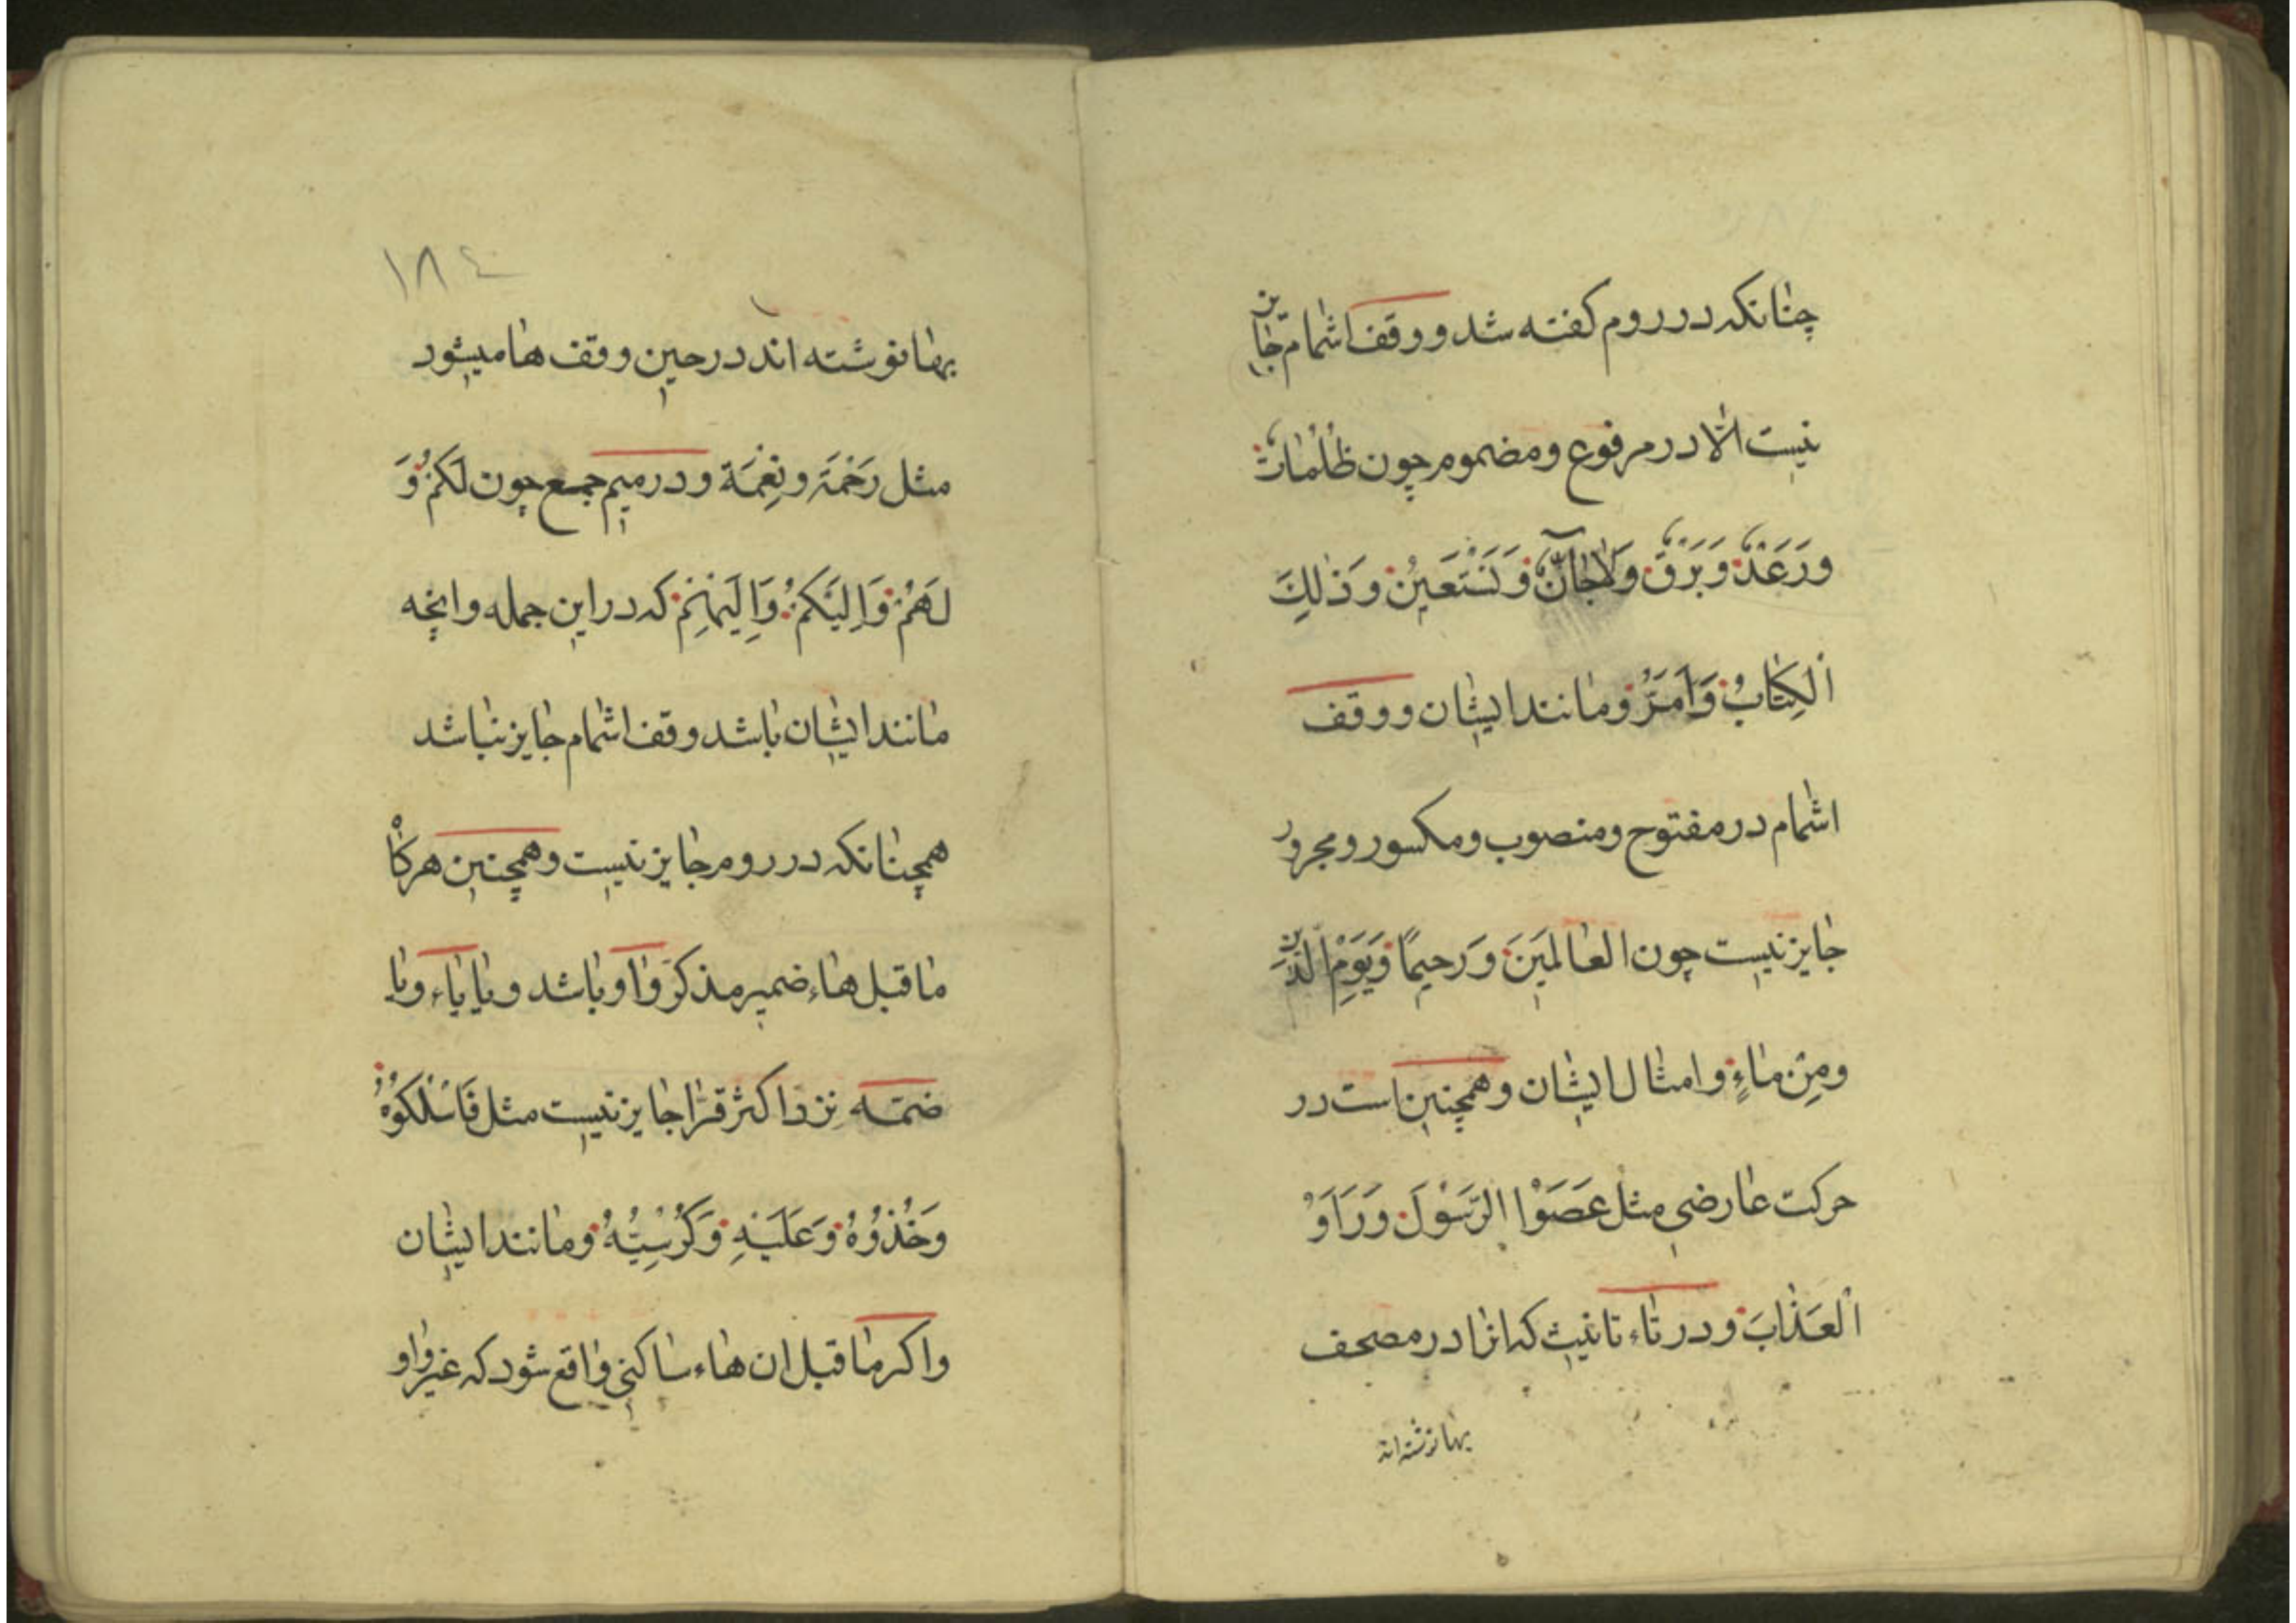 چنانكه در روم كفته شد و وقف اشمام جايز
نيست الّا در مرفوع و مضموم چون ظُلُمَاتٌ
وَرَعْدٌ وَبَرْقٌ وَلَاجَآنٌّ وَنَسْتَعِينُ وَذٰلِكَ
الْكِتَابُ وَاَمَرُّ و مانند ايشان و وقف
اشمام در مفتوح و منصوب و مكسور و مجرور
جايز نيست چون العَالَمِينَ وَرَحيمًا وَيَوْمِ الدّينِ
ومِنْ مَاءٍ و امثال ايشان و همچنين است در
حركت عارضى مثل عَصَوُا الرَّسُولَ وَرَاَوُ
الْعَذَابَ و در تاء تانيث كه انرا در مصحف
بها نوشته اند
١٨٤
بها نوشته اند در حين وقف ها ميشود
مثل رَحْمَة و نِعْمَة و در ميم جمع چون لَكُمْ وَ
لَهُمْ وَاِلَيْكُمْ وَاِلَيْهِمْ كه در اين جمله و انچه
مانند ايشان باشد وقف اشمام جايز نباشد
همچنانكه در روم جايز نيست و همچنين هركاْ
ما قبل هاء ضمير مذكر واو باشد و يا ياء و يا
ضمّه نزد اكثر قرا جايز نيست مثل فَاسْلُكُوهُ
وَخُذُوهُ وَعَلَيْهِ وَكُرْسِيُّهُ و مانند ايشان
و اكر ما قبل ان هاء ساكنى واقع شود كه غير واو